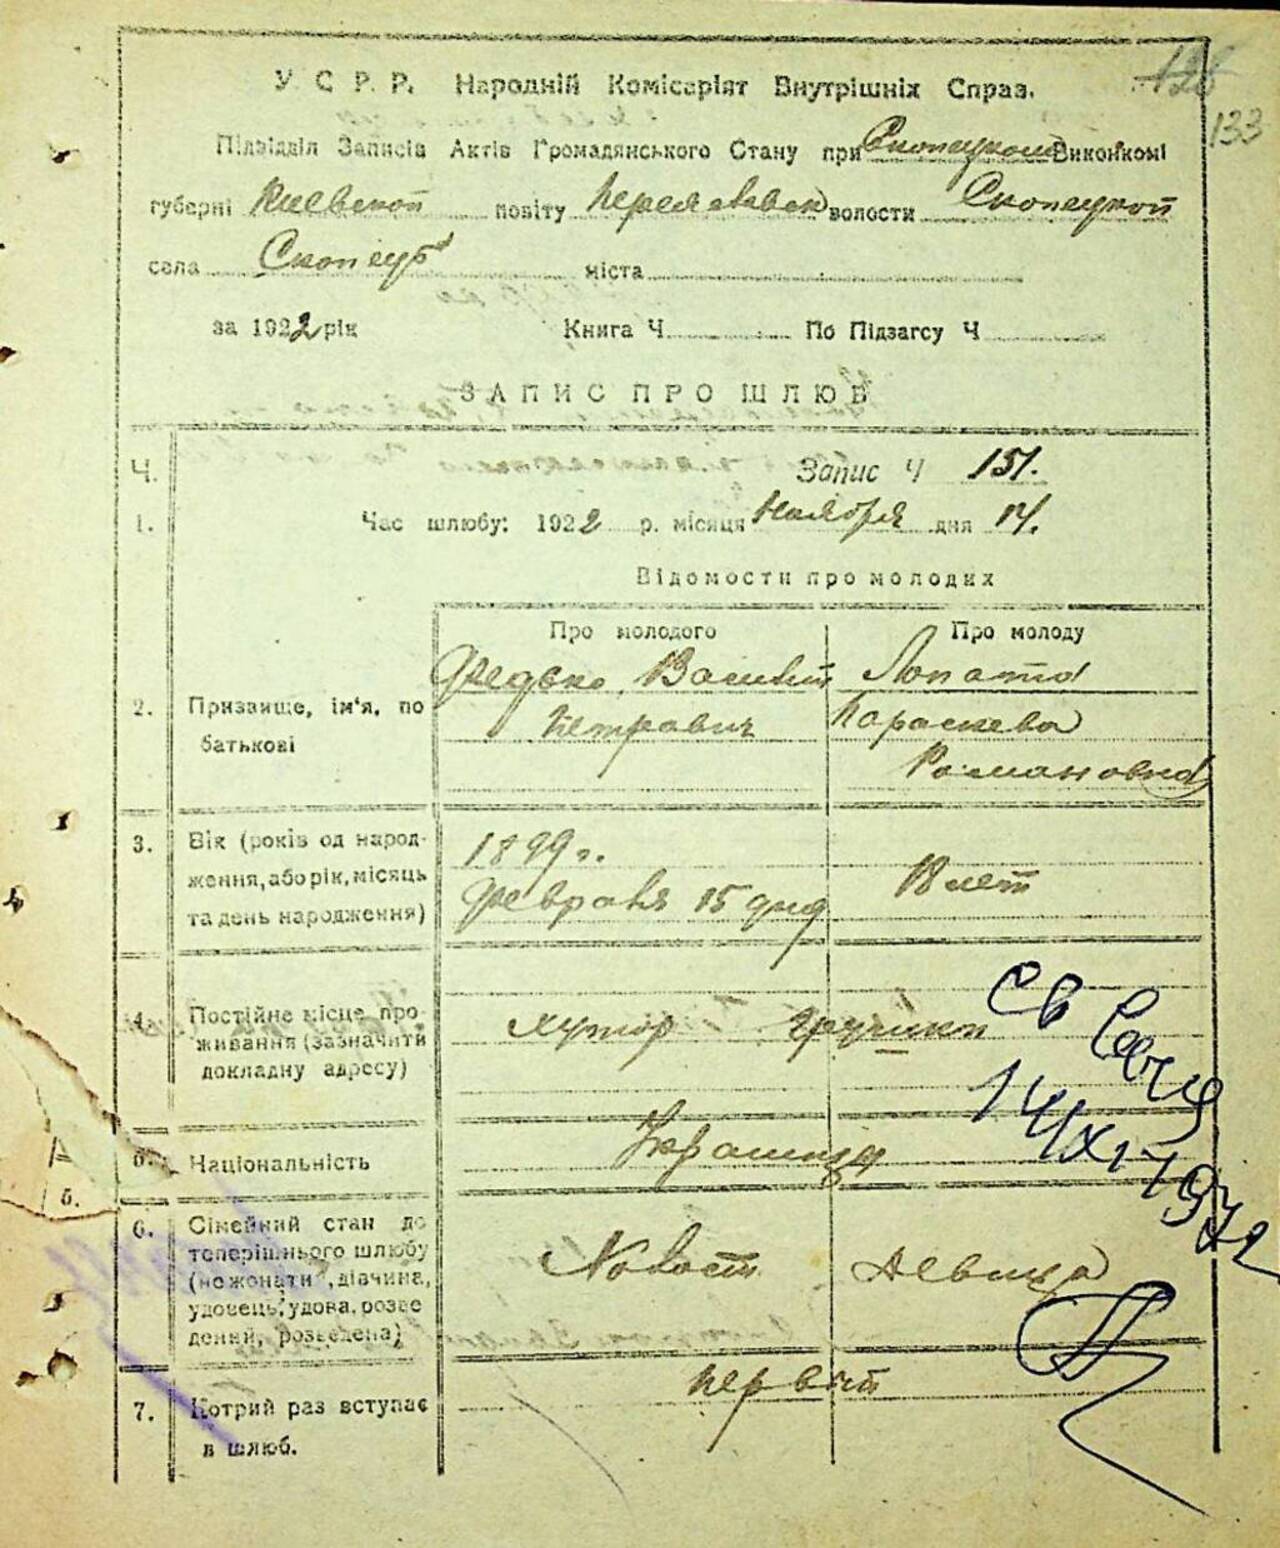 126
133
У. С. Р. Р. Народній Комісаріят Внутрішніх Справ.
Підвідділ Записів Актів Громадянського Стану при Скопецком Виконкомі
губерні Киевской повіту Переяславск волости Скопецкой
села Скопецъ міста
за 1922 рік Книга Ч По Підзагсу Ч
ЗАПИС ПРО ШЛЮБ
Ч. Запис Ч 151.
1. Час шлюбу: 1922 р. місяця Ноября дня 14.
Відомости про молодих
Про молодого Про молоду
2. Призвище, ім'я, по батькові
Федько Василий
Петрович
Лопата
Параскева
Романовна
3. Вік (років од народ-
ження, або рік, місяць
та день народження)
1899 г.
Февраля 15 дня
18 лет
4. Постійне місце про-
живання (зазначити
докладну адресу)
хутор
5. Національність
Украинцы
6. Сімейний стан до
теперішнього шлюбу
(нежонатий, дівчина,
удовець, удова, розве
дений, розведена)
Холост Девица
7. Котрий раз вступає
в шлюб.
первый
Св